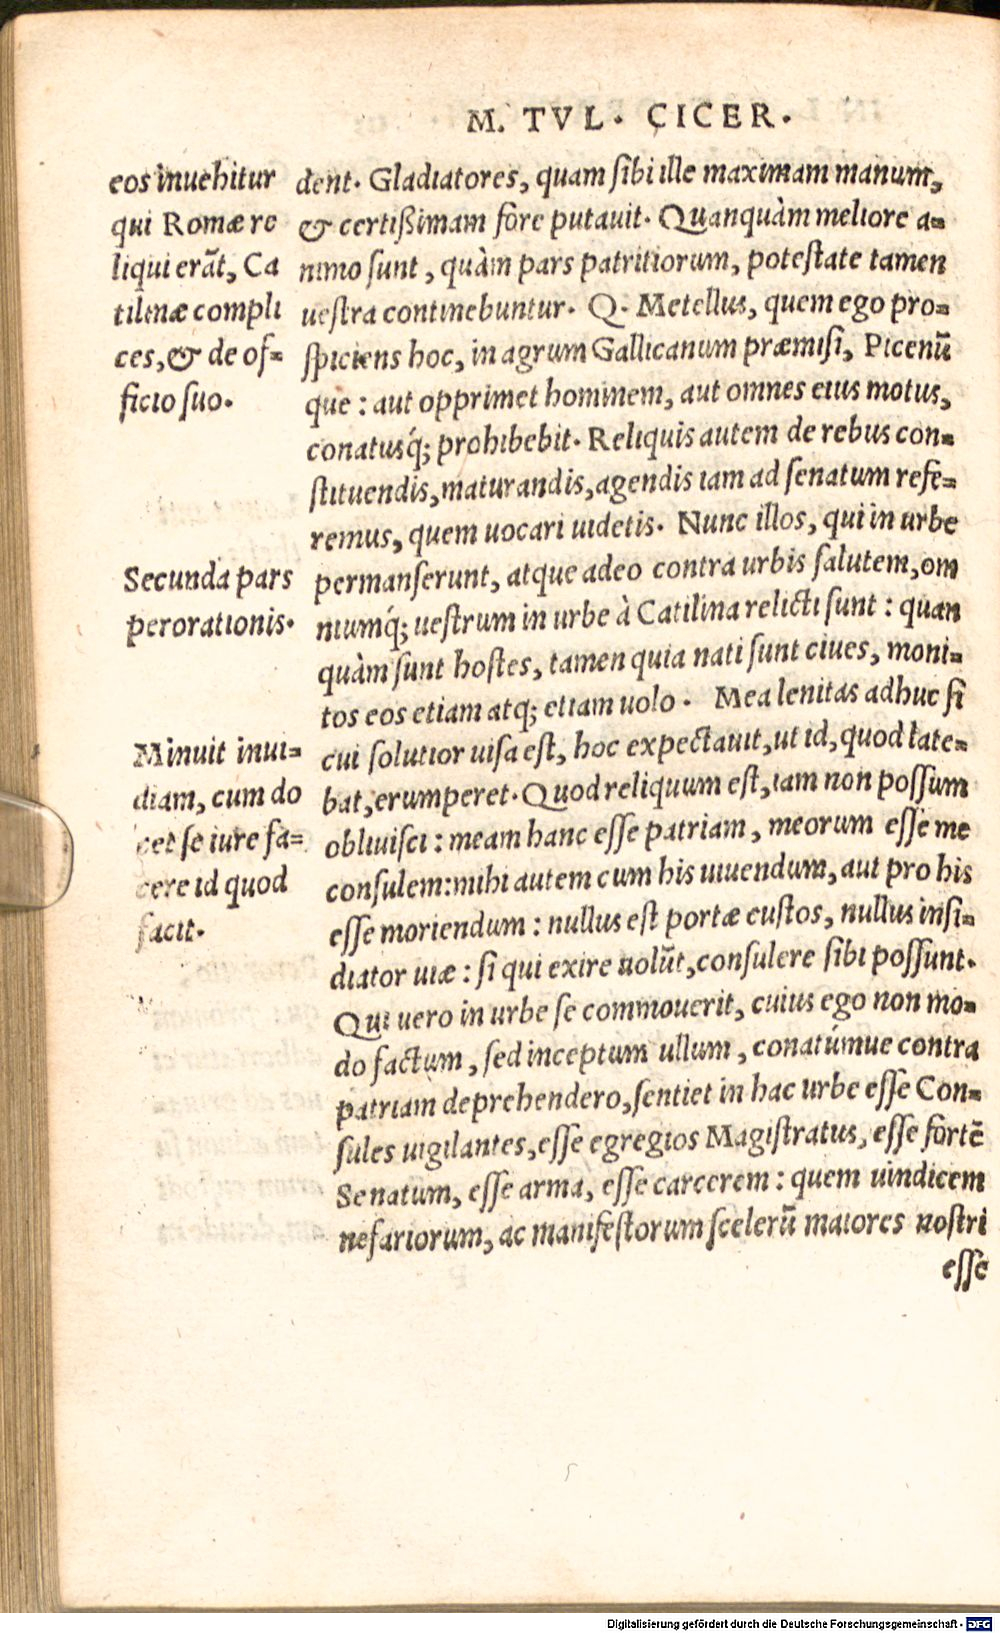 M. TVL. CICER.
eos inuehitur
qui Romæ re
liqui erāt, Ca
tilinæ compli
ces, & de of=
ficio suo.
Secunda pars
perorationis.
Minuit inui=
diam, cum do
cet se iure fa=
cere id quod
facit.
dent. Gladiatores, quam ſibi ille maximam manum,
& certißimam fore putauit. Quanquàm meliore a=
nimo ſunt, quàm pars patritiorum, poteſtate tamen
ueſtra continebuntur. Q. Metellus, quem ego pro=
ſpiciens hoc, in agrum Gallicanum præmiſi, Picenū
que: aut opprimet hominem, aut omnes eius motus,
conatusq́; prohibebit. Reliquis autem de rebus con=
ſtituendis, maturandis, agendis iam ad ſenatum refe=
remus, quem uocari uidetis. Nunc illos, qui in urbe
permanſerunt, atque adeo contra urbis ſalutem, om
niumq́; ueſtrum in urbe à Catilina relicti ſunt: quan
quàm ſunt hoſtes, tamen quia nati ſunt ciues, moni=
tos eos etiam atq; etiam uolo. Mea lenitas adhuc ſi
cui ſolutior uiſa eſt, hoc expectauit, ut id, quod late=
bat, erumperet. Quod reliquum eſt, iam non poſſum
obliuiſci: meam hanc eſſe patriam, meorum eſſe me
conſulem: mihi autem cum his uiuendum, aut pro his
eſſe moriendum: nullus eſt portæ cuſtos, nullus inſi=
diator uiæ: ſi qui exire uolūt, conſulere ſibi poſſunt.
Qui uero in urbe ſe commouerit, cuius ego non mo=
do factum, ſed inceptum ullum, conatúmue contra
patriam deprehendero, ſentiet in hac urbe eſſe Con=
ſules uigilantes, eſſe egregios Magiſtratus, eſſe fortē
Senatum, eſſe arma, eſſe carcerem: quem uindicem
nefariorum, ac manifeſtorum ſcelerū maiores noſtri
eſſe
Digitalisierung gefördert durch die Deutsche Forschungsgemeinschaft - DFG